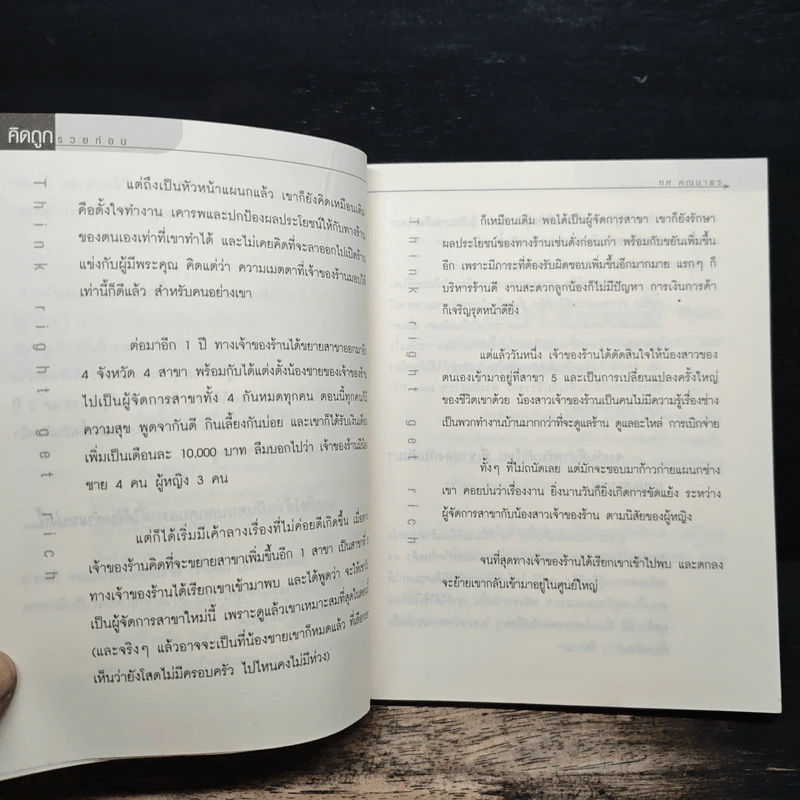 คิดถูก
รวยก่อน
Think right get rich
แต่ถึงเป็นหัวหน้าแผนกแล้ว เขาก็ยังคิดเหมือนเดิม
คือตั้งใจทำงาน เคารพและปกป้องผลประโยชน์ให้กับทางร้าน
ของตนเองเท่าที่เขาทำได้ และไม่เคยคิดที่จะลาออกไปเปิดร้าน
แข่งกับผู้มีพระคุณ คิดแต่ว่า ความเมตตาที่เจ้าของร้านมอบให้
เท่านี้ก็ดีแล้ว สำหรับคนอย่างเขา
ต่อมาอีก 1 ปี ทางเจ้าของร้านได้ขยายสาขาออกมาอีก
4 จังหวัด 4 สาขา พร้อมกับได้แต่งตั้งน้องชายของเจ้าของร้าน
ไปเป็นผู้จัดการสาขาทั้ง 4 กันหมดทุกคน ตอนนี้ทุกคนก็มี
ความสุข พูดจากันดี กินเลี้ยงกันบ่อย และเขาก็ได้รับเงินเดือน
เพิ่มเป็นเดือนละ 10,000 บาท ลืมบอกไปว่า เจ้าของร้านมีน้อง
ชาย 4 คน ผู้หญิง 3 คน
แต่ก็ได้เริ่มมีเค้าลางเรื่องที่ไม่ค่อยดีเกิดขึ้น เมื่อทาง
เจ้าของร้านคิดที่จะขยายสาขาเพิ่มขึ้นอีก 1 สาขา เป็นสาขาที่
ทางเจ้าของร้านได้เรียกเขาเข้ามาพบ และได้พูดว่า จะให้เขาไป
เป็นผู้จัดการสาขาใหม่นี้ เพราะดูแล้วเขาเหมาะสมที่สุดในตอนนี้
(และจริงๆ แล้วอาจจะเป็นที่น้องชายเขาก็หมดแล้ว ที่เลือกเพราะ
เห็นว่ายังโสดไม่มีครอบครัว ไปไหนคงไม่มีห่วง)
ทศ คณนาพร
Think right get rich
ก็เหมือนเดิม พอได้เป็นผู้จัดการสาขา เขาก็ยังรักษา
ผลประโยชน์ของทางร้านเช่นดั่งก่อนเก่า พร้อมกับขยันเพิ่มขึ้น
อีก เพราะมีภาระที่ต้องรับผิดชอบเพิ่มขึ้นอีกมากมาย แรกๆ ก็
บริหารร้านดี งานสะดวกลูกน้องก็ไม่มีปัญหา การเงินการค้า
ก็เจริญรุดหน้าดียิ่ง
แต่แล้ววันหนึ่ง เจ้าของร้านได้ตัดสินใจให้น้องสาวของ
ตนเองเข้ามาอยู่ที่สาขา 5 และเป็นการเปลี่ยนแปลงครั้งใหญ่
ของชีวิตเขาด้วย น้องสาวเจ้าของร้านเป็นคนไม่มีความรู้เรื่องช่าง
เป็นพวกทำงานบ้านมากกว่าที่จะดูแลร้าน ดูแลอะไหล่ การเบิกจ่าย
ทั้งๆ ที่ไม่ถนัดเลย แต่มักจะชอบมาก้าวก่ายแผนกช่าง
เขา คอยบ่นว่าเรื่องงาน ยิ่งนานวันก็ยิ่งเกิดการขัดแย้ง ระหว่าง
ผู้จัดการสาขากับน้องสาวเจ้าของร้าน ตามนิสัยของผู้หญิง
จนที่สุดทางเจ้าของร้านได้เรียกเขาเข้าไปพบ และตกลง
จะย้ายเขากลับเข้ามาอยู่ในศูนย์ใหญ่